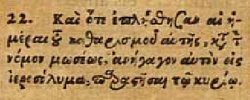 22. Καὶ ὅτε ἐπλήσθησαν αἱ ἡ-
μέραι τοῦ καθαρισμοῦ αὐτῆς, κτ' τ̀
νόμον μωσέως, ἀνήγαγον αὐτὸν εἰς
ἱεροσόλυμα, παραστῆσαι τῷ κυρίῳ.